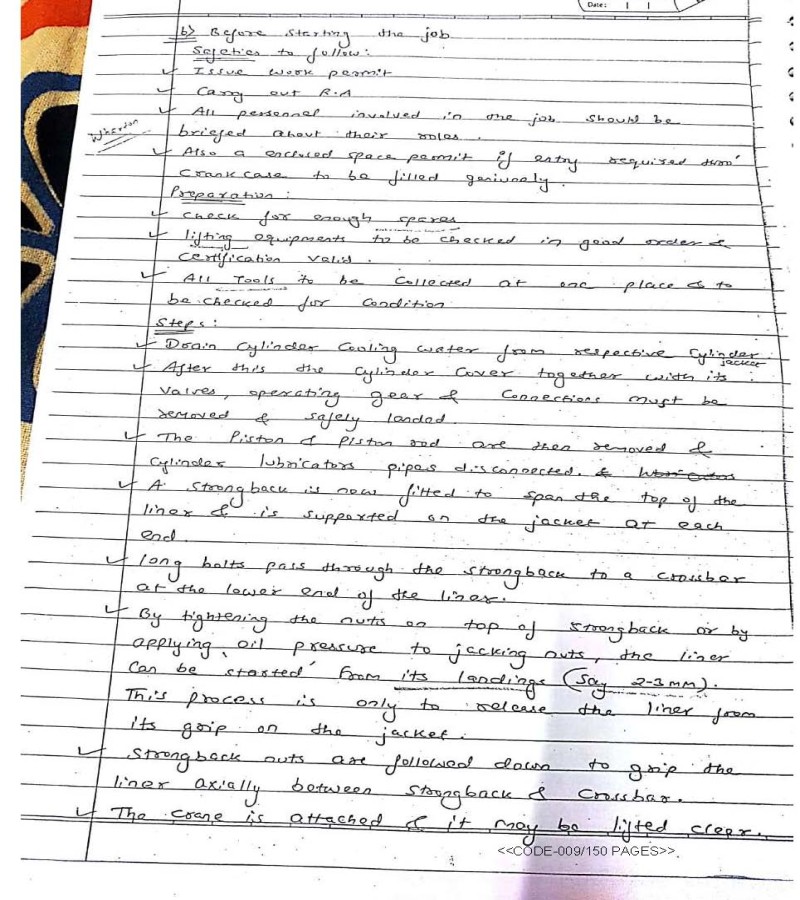 Date:
b) Before starting the job
Safeties to follow:
✓ Issue work permit
✓ Carry out R.A
✓ All personnel involved in the job should be
briefed about their roles.
✓ Also a enclosed space permit if entry required thro'
Crankcase to be filled geniunely.
Preparation:
✓ Check for enough spares
✓ lifting equipments to be checked in good order &
certification valid.
✓ All Tools to be collected at one place & to
be checked for condition
Steps:
✓ Drain Cylinder Cooling water from respective Cylinder
jacket
✓ After this the cylinder cover together with its
valves, operating gear & connections must be
removed & safely landed.
✓ The Piston & Piston rod are then removed &
cylinder lubricators pipes disconnected. &
✓ A strongback is now fitted to span the top of the
liner & is supported on the jacket at each
end.
✓ long bolts pass through the strongback to a crossbar
at the lower end of the liner.
✓ By tightening the nuts on top of strongback or by
applying oil pressure to jacking nuts, the liner
can be started from its landings (say 2-3mm).
This process is only to release the liner from
its grip on the jacket.
✓ Strongback nuts are followed down to grip the
liner axially between strongback & crossbar.
✓ The crane is attached & it may be lifted clear.
<<CODE-009/150 PAGES>>